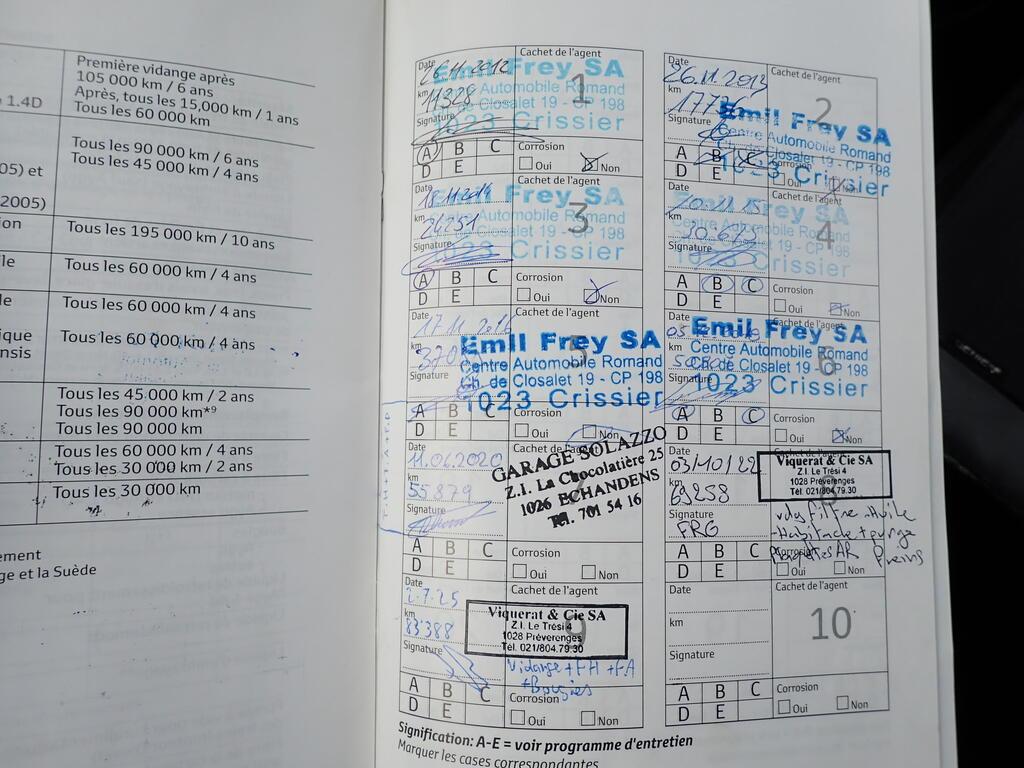 Première vidange après
105 000 km / 6 ans
1.4D
Après, tous les 15,000 km / 1 ans
Tous les 60 000 km
Tous les 90 000 km / 6 ans
Tous les 45 000 km / 4 ans
05) et
2005)
ion
Tous les 195 000 km / 10 ans
Tous les 60 000 km / 4 ans
le
Tous les 60 000 km / 4 ans
ique
nsis
Tous les 60 000 km / 4 ans
Tous les 45 000 km / 2 ans
Tous les 90 000 km*9
Tous les 90 000 km
Tous les 60 000 km / 4 ans
Tous les 30 000 km / 2 ans
Tous les 30 000 km
ement
ge et la Suède
Date 26.11.2012
Cachet de l'agent
km 11328
1
Emil Frey SA
Centre Automobile Romand
Ch. de Closalet 19 - CP 198
1023 Crissier
Signature
A B C
D E
Corrosion
Oui Non
Date 26.11.2013
Cachet de l'agent
km
2
Emil Frey SA
Centre Automobile Romand
Closalet 19 - CP 198
1023 Crissier
Signature
A B C
D E
Corrosion
Oui Non
Date 18.11.2014
Cachet de l'agent
km 24251
3
Emil Frey SA
Centre Automobile Romand
Closalet 19 - CP 198
1023 Crissier
Signature
A B C
D E
Corrosion
Oui Non
Date
4
km
Frey SA
Centre Automobile Romand
Closalet 19 - CP 198
Crissier
Signature
A B C
D E
Corrosion
Oui Non
Date 17.11.2016
Cachet de l'agent
km
Emil Frey SA
Centre Automobile Romand
Ch. de Closalet 19 - CP 198
1023 Crissier
Signature
A B C
D E
Corrosion
Oui Non
Date
Cachet de l'agent
km
6
Emil Frey SA
Centre Automobile Romand
Ch. de Closalet 19 - CP 198
1023 Crissier
Signature
A B C
D E
Corrosion
Oui Non
Date 11.06.2020
Cachet de l'agent
km 55879
GARAGE SOLAZZO
Z.I. La Chocolatière 25
1026 ECHANDENS
Tél. 701 54 16
Signature
A B C
D E
Corrosion
Oui Non
Date 03/10/22
km 69258
Viquerat & Cie SA
Z.I. Le Trési 4
1028 Préverenges
Tél. 021/804.79.30
Signature
FRG
A B C
D E
Corrosion
Oui Non
Date 2.7.25
Cachet de l'agent
km 83388
9
Viquerat & Cie SA
Z.I. Le Trési 4
1028 Préverenges
Tél. 021/804.79.30
Signature
Vidange + FH + FA
+ Bougies
A B C
D E
Corrosion
Oui Non
Date
Cachet de l'agent
km
10
Signature
A B C
D E
Corrosion
Oui Non
Signification: A-E = voir programme d'entretien
Marquer les cases correspondantes